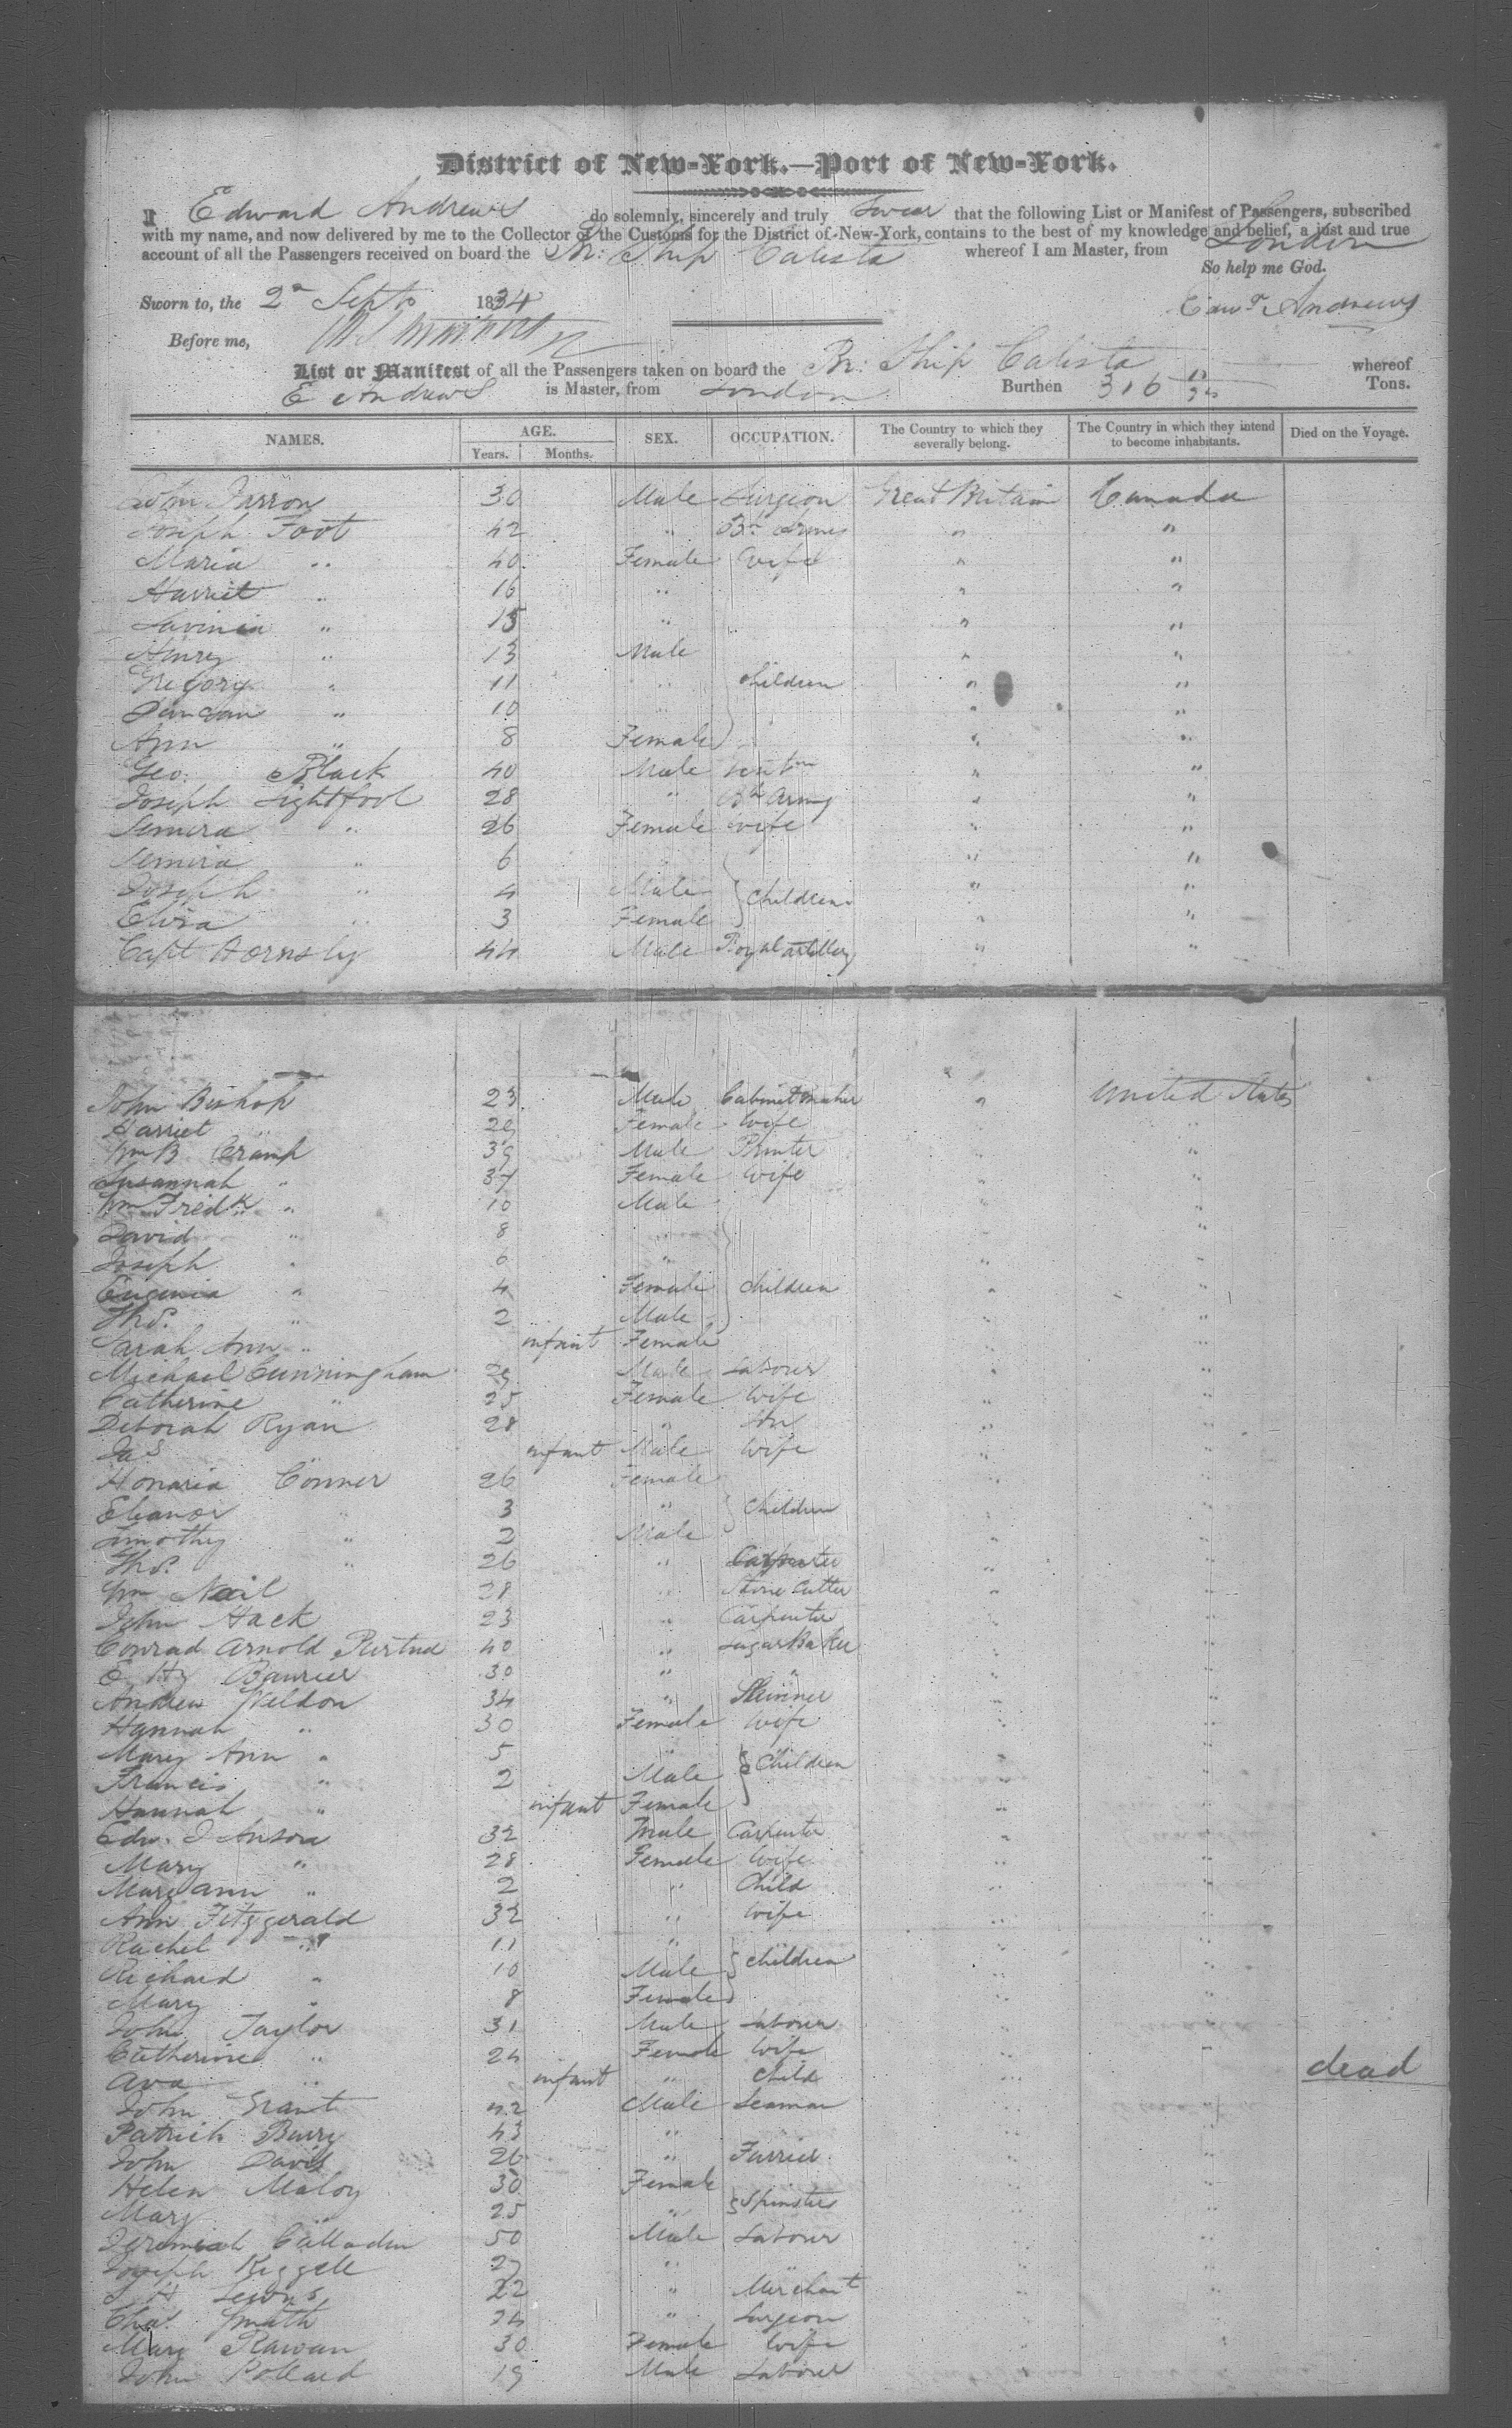 District of New-York.—Port of New-York.
I Edward Andrews do solemnly, sincerely and truly Swear that the following List or Manifest of Passengers, subscribed
with my name, and now delivered by me to the Collector of the Customs for the District of New-York, contains to the best of my knowledge and belief, a just and true
account of all the Passengers received on board the Br: Ship Calista whereof I am Master, from London
So help me God.
Sworn to, the 2d Sept 1834 Edwd Andrews
Before me,
List or Manifest of all the Passengers taken on board the Br: Ship Calista whereof
E Andrews is Master, from London Burthen 316 Tons.
NAMES. AGE. Years. Months. SEX. OCCUPATION. The Country to which they severally belong. The Country in which they intend to become inhabitants. Died on the Voyage.
John Farron 30 Male Surgeon Great Britain Canada
Joseph Foot 42 " Br. Army " "
Maria " 40 Female Wife " "
Harriet " 16 " " "
Lavinia " 15 " " "
Henry " 13 Male " "
Gregory " 11 " children " "
Duncan " 10 " " "
Ann " 8 Female " "
Geo. Black 40 Male " "
Joseph Lightfoot 28 " Bh Army " "
Semira " 26 Female Wife " "
Semira " 6 " " "
Joseph " 4 Male children " "
Eliza " 3 Female " "
Capt Hornsby 44 Male Royal artillery " "
John Bishop 23 Male Cabinet maker " United States
Harriet " 29 Female Wife " "
Wm B. Cramp 39 Male Printer " "
Susannah " 37 Female Wife " "
Wm Fredk " 10 Male " "
David " 8 " " "
Joseph " 6 " " "
Eugenia " 4 Female children " "
Thos. " 2 Male " "
Sarah Ann " infant Female " "
Michael Cunningham 29 Male Labourer " "
Catherine " 25 Female Wife " "
Deborah Ryan 28 " Son " "
Jas " infant Male Wife " "
Honaria Conner 26 Female " "
Eleanor " 3 " children " "
Timothy " 2 Male " "
Thos. " 26 " Carpenter " "
Wm Nail 28 " Stone Cutter " "
John Hack 23 " Carpenter " "
Conrad Arnold 40 " Sugar Baker " "
E. Hy 30 " " " "
Andrew Weldon 34 " Skinner " "
Hannah " 30 Female Wife " "
Mary Ann " 5 " Children " "
Francis " 2 Male " "
Hannah " infant Female " "
Edw. I Anson 32 Male Carpenter " "
Mary " 28 Female Wife " "
Mary ann " 2 " Child " "
Ann Fitzgerald 32 " Wife " "
Rachel " 11 " " "
Richard " 10 Male children " "
Mary " 8 Female " "
John Taylor 31 Male Labourer " "
Catherine " 24 Female Wife " "
Ava " infant " Child " " dead
John Grant 42 Male Seaman " "
Patrick Barry 43 " " "
John Davis 26 " Farrier " "
Helen Maloy 30 Female " "
Mary " 25 " Spinsters " "
Jeremiah 50 Male Labourer " "
Joseph 27 " " " "
Lewis 22 " Merchant " "
Chas. Smith 24 " Surgeon " "
Mary Rawan 30 Female Wife " "
John Pollard 19 Male Labourer